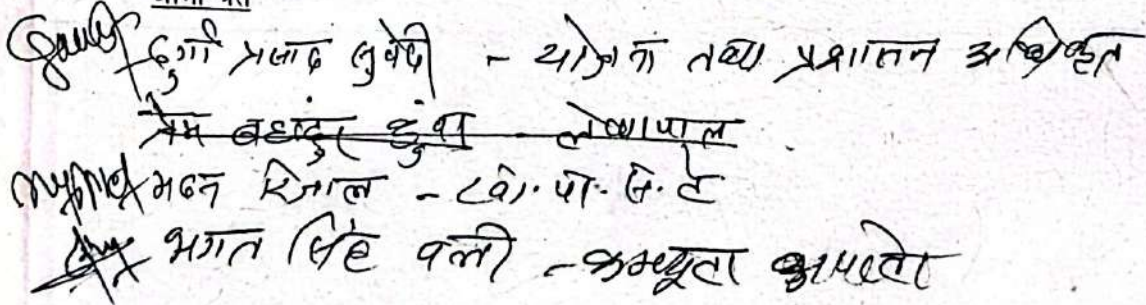 दुर्गा प्रसाद सुवेदी - योजना तथा प्रशासन अधिकृत
प्रेम बहादुर डुंवा - लेखापाल
मदन रिजाल - खा. पा. स. टे
भगत सिंह वली - कम्प्यूटर अपरेटर